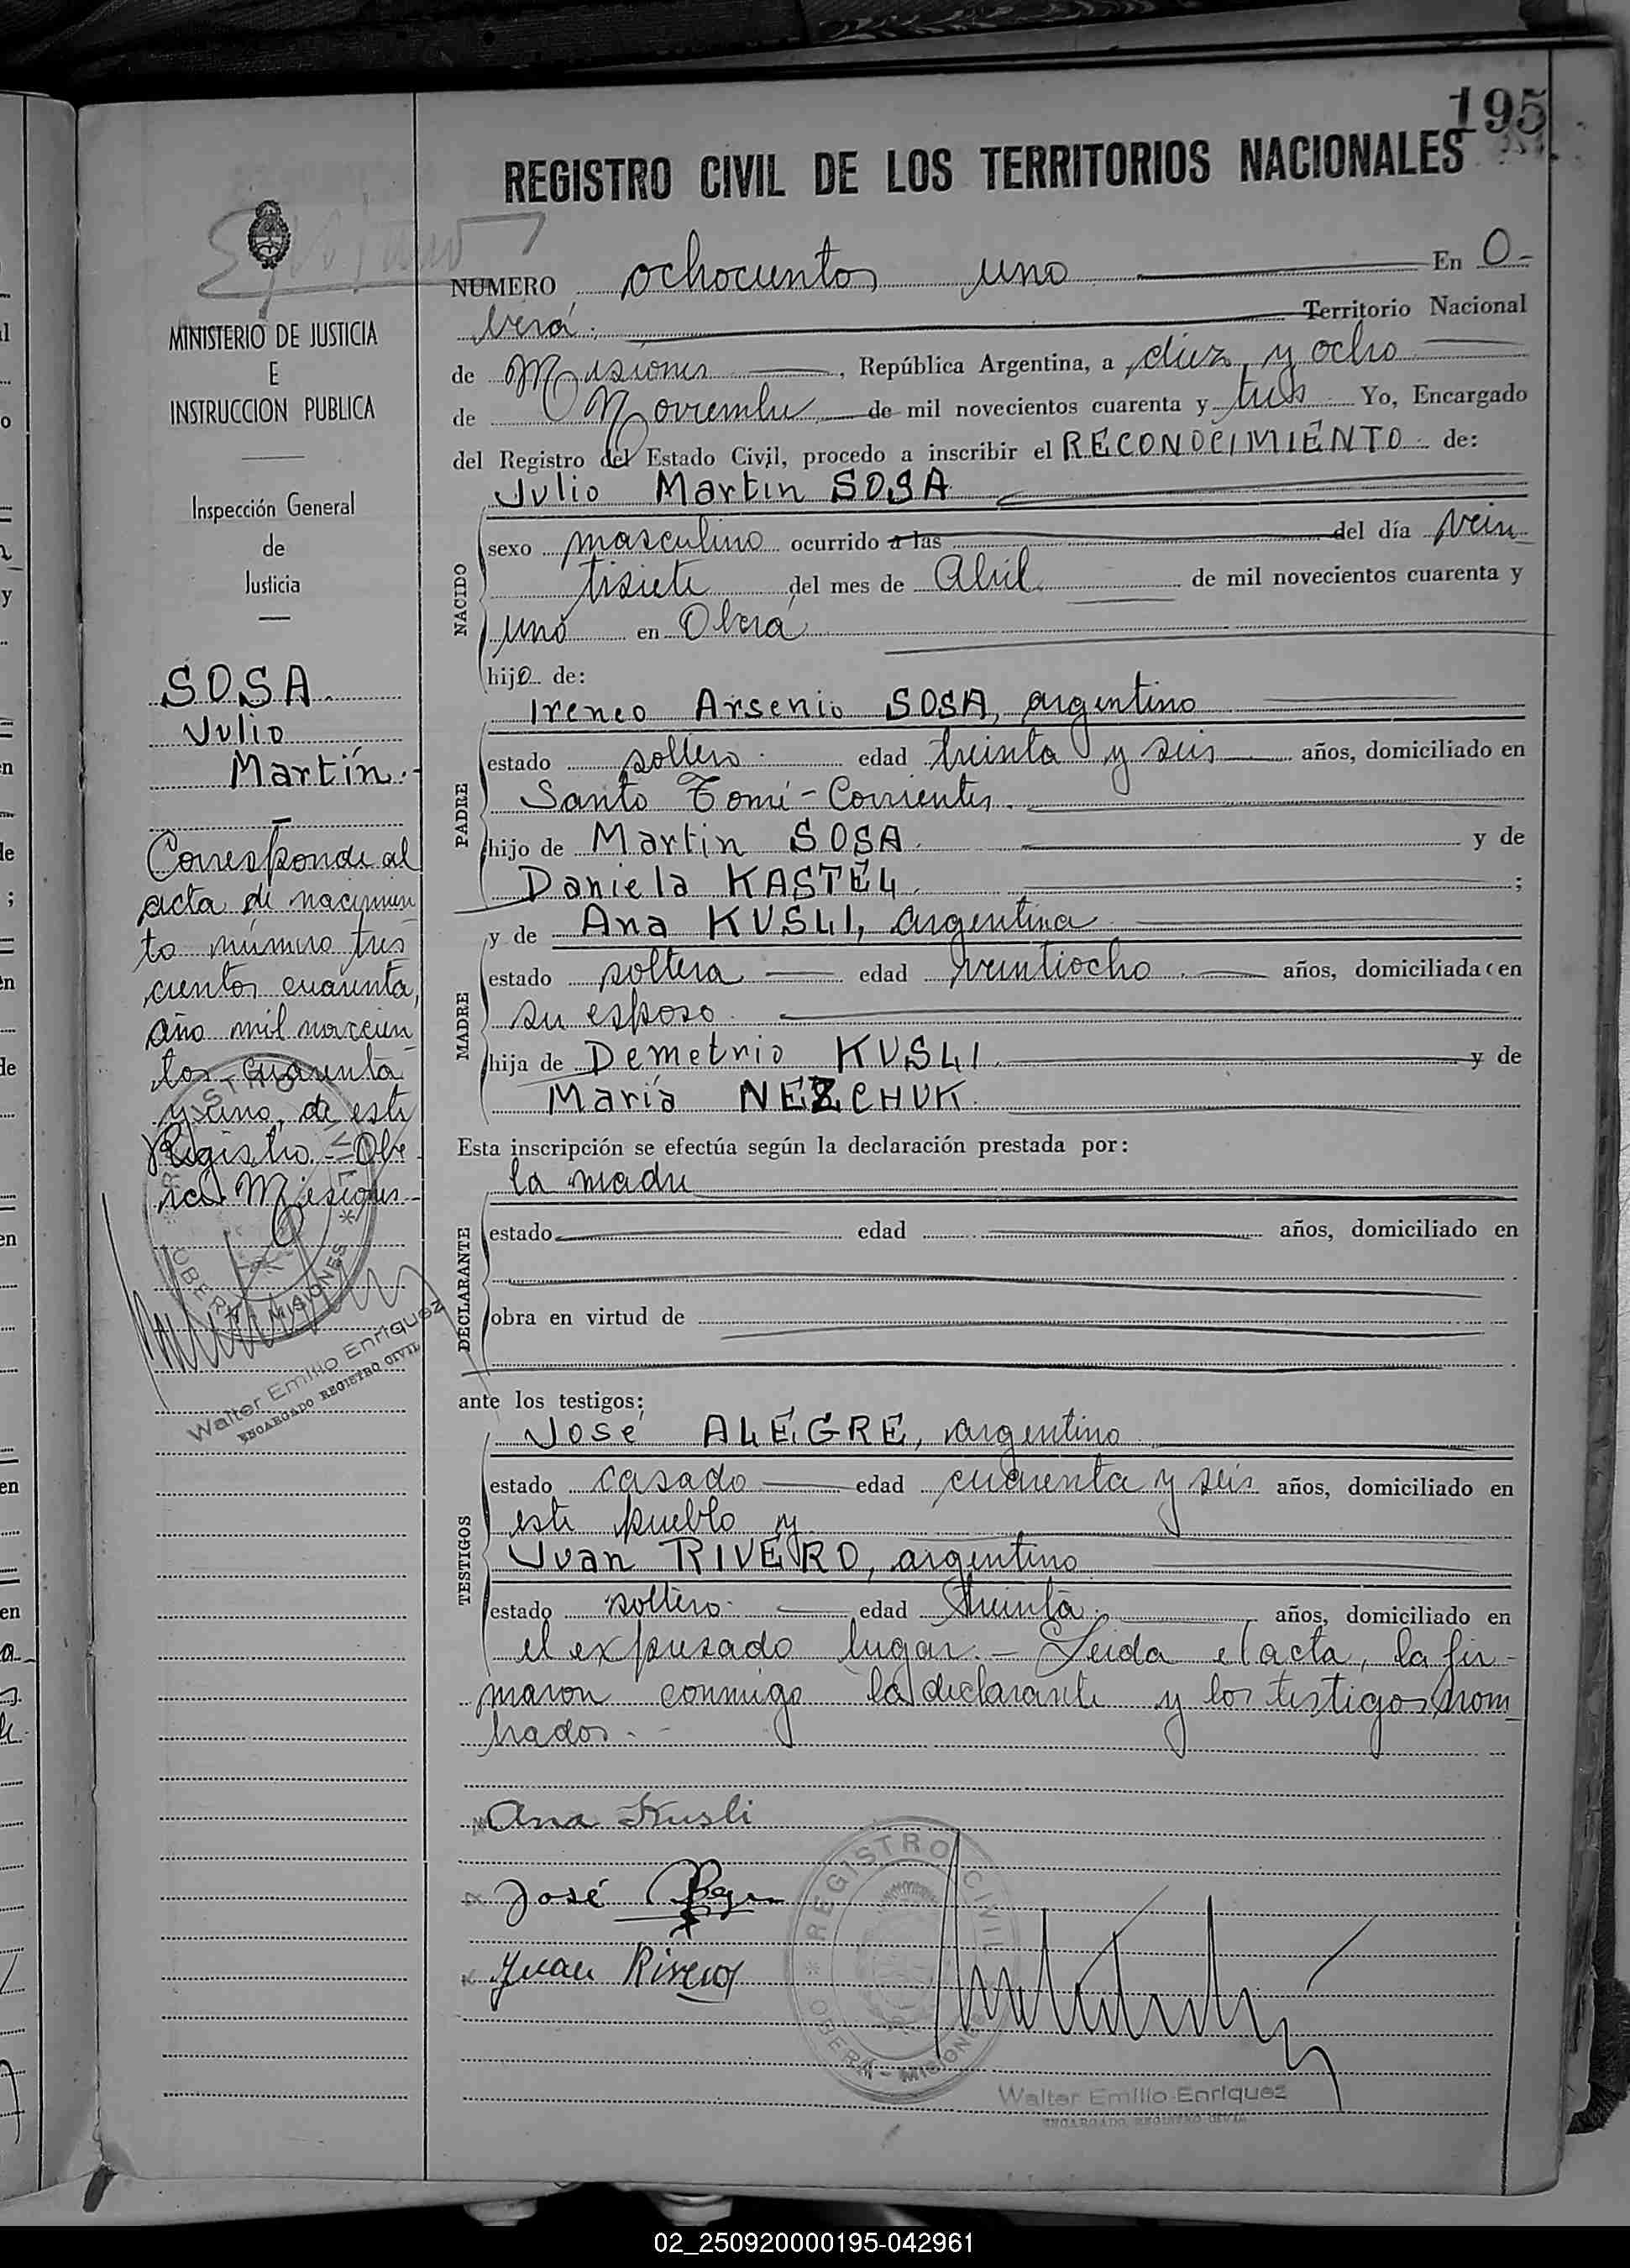 195
REGISTRO CIVIL DE LOS TERRITORIOS NACIONALES
MINISTERIO DE JUSTICIA
E
INSTRUCCION PUBLICA
Inspección General
de
Justicia
SOSA
Julio
Martín.
Corresponde al
acta de nacimien
to número tres
cientos cuarenta,
año mil novecien
tos cuarenta
y uno, de este
Registro.- Obe
rá Misiones.-
REGISTRO CIVIL
* OBERÁ - MISIONES *
Walter Emilio Enriquez
ENCARGADO REGISTRO CIVIL
NUMERO ochocientos uno En O-
berá. Territorio Nacional
de Misiones, República Argentina, a diez y ocho
de Noviembre de mil novecientos cuarenta y tres. Yo, Encargado
del Registro del Estado Civil, procedo a inscribir el RECONOCIMIENTO de:
Julio Martin SOSA
NACIDO
sexo masculino ocurrido a las del día vein
tisiete del mes de Abril de mil novecientos cuarenta y
uno en Oberá
hijo de:
PADRE
Ireneo Arsenio SOSA, argentino
estado soltero. edad treinta y seis años, domiciliado en
Santo Tomé - Corrientes.
hijo de Martin SOSA y de
Daniela KASTEL ;
MADRE
y de Ana KUSLI, argentina
estado soltera edad veintiocho. años, domiciliada en
su esposo.
hija de Demetrio KUSLI y de
María NEZCHUK.
Esta inscripción se efectúa según la declaración prestada por:
DECLARANTE
la madre
estado edad años, domiciliado en
obra en virtud de
ante los testigos:
TESTIGOS
José ALEGRE, argentino
estado casado edad cuarenta y seis años, domiciliado en
este pueblo y
Juan RIVERO, argentino
estado soltero. edad treinta. años, domiciliado en
el expresado lugar.- Leida el acta, la fir-
maron conmigo la declarante y los testigos nom
brados.-
Ana Kusli
José
Juan Rivero
REGISTRO CIVIL
* OBERÁ - MISIONES
Walter Emilio Enriquez
ENCARGADO REGISTRO CIVIL
02_250920000195-042961